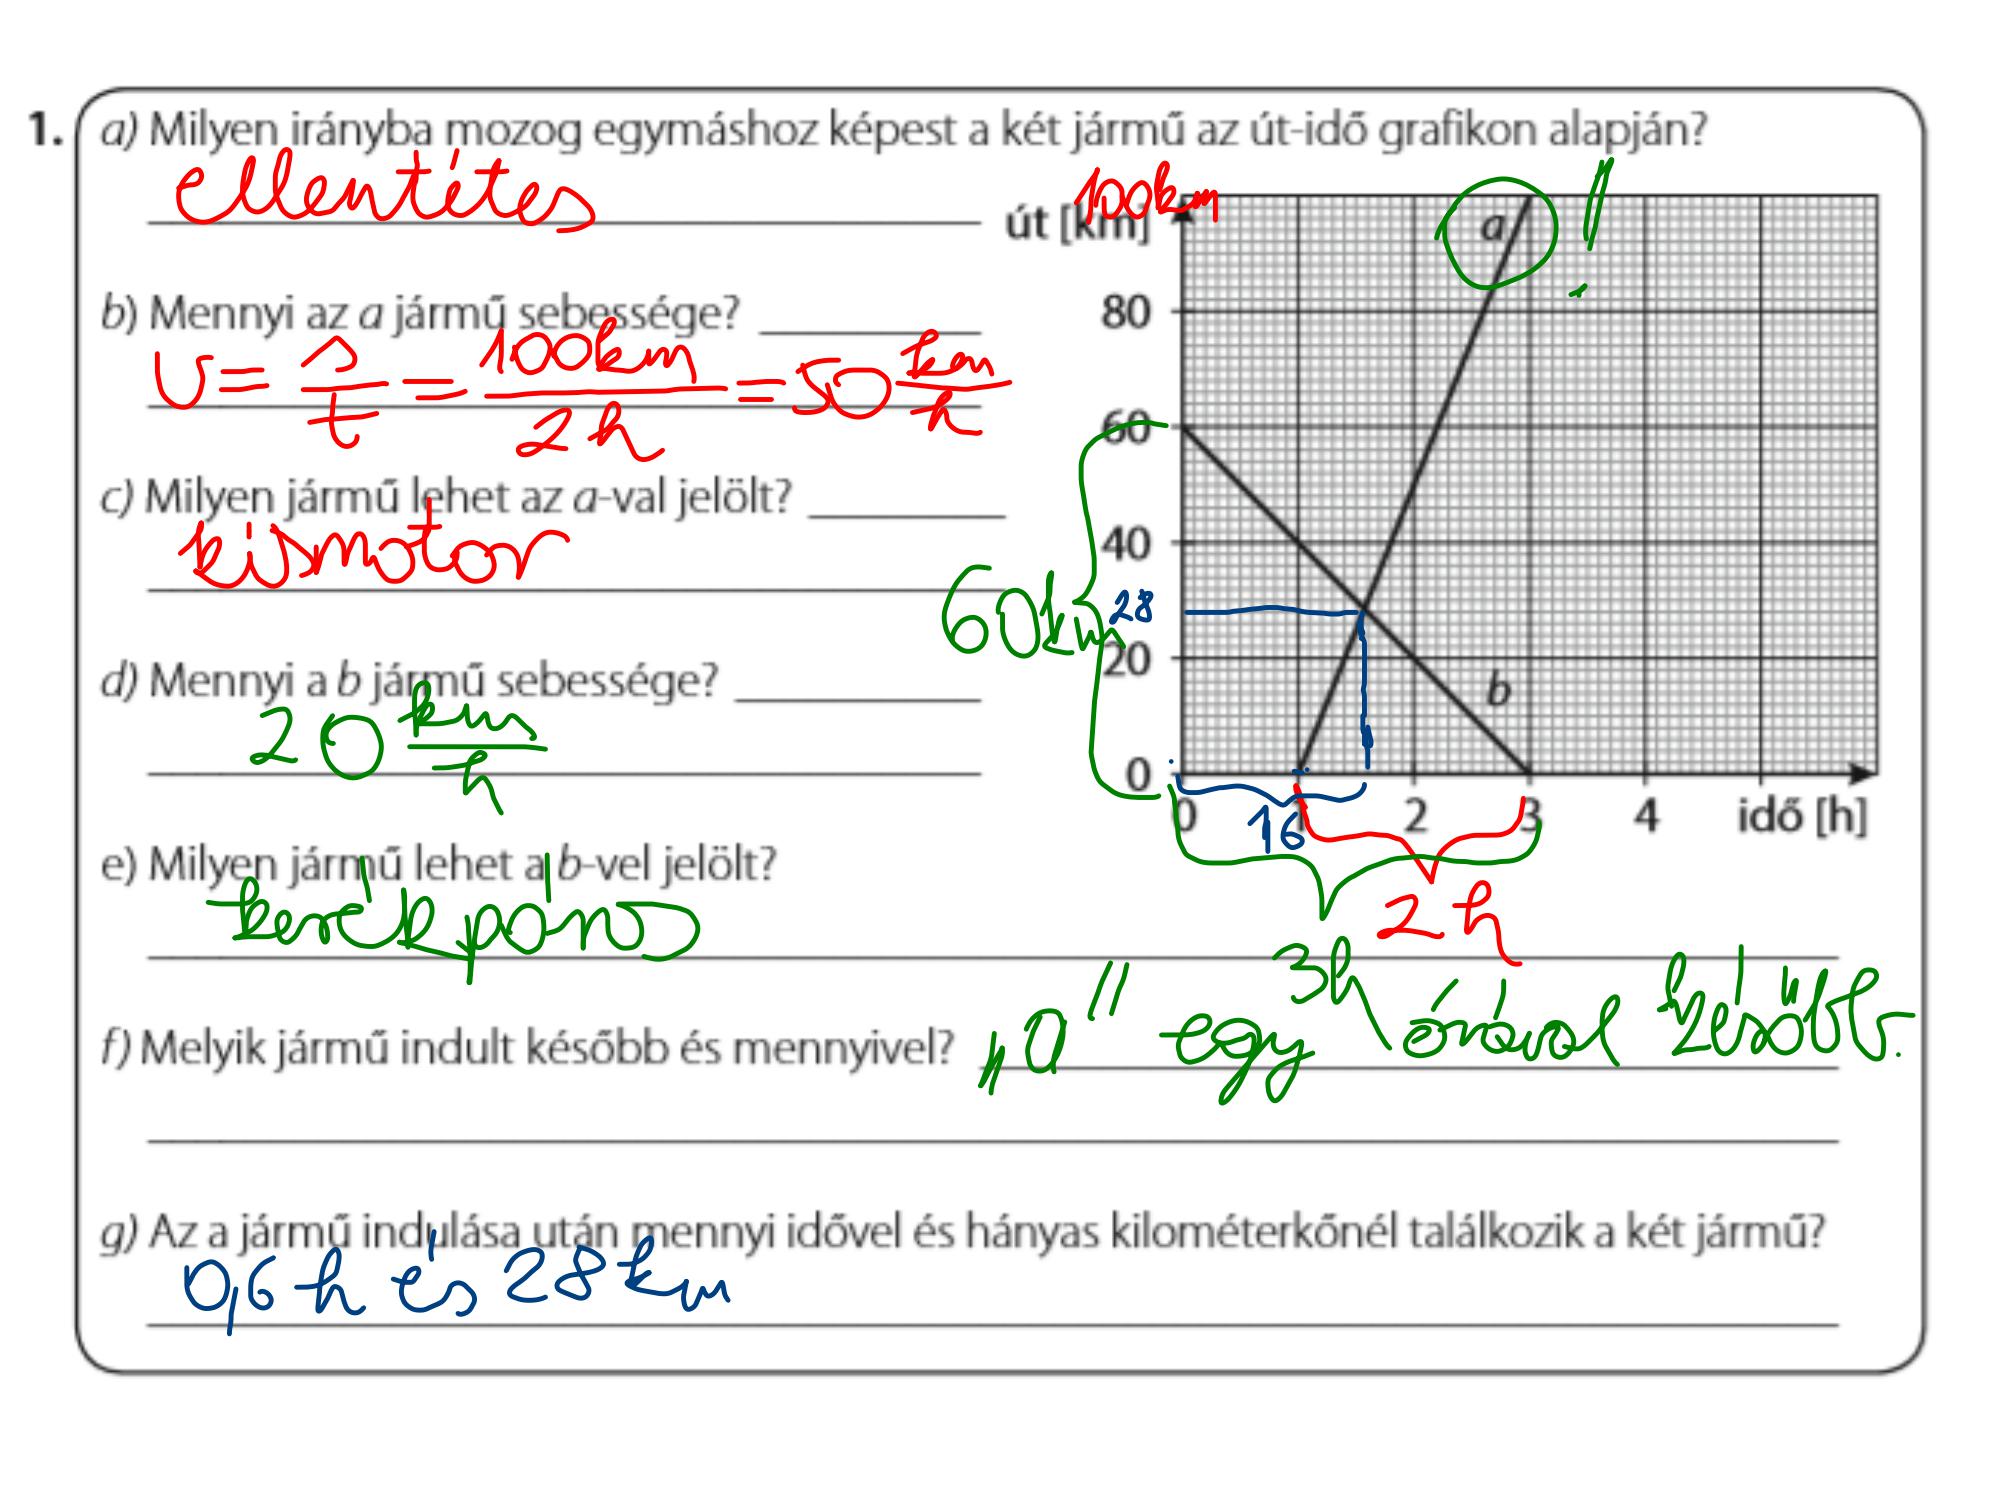 1. a) Milyen irányba mozog egymáshoz képest a két jármű az út-idő grafikon alapján?
ellentétes
b) Mennyi az a jármű sebessége?
v = s/t = 100km/2h = 50 km/h
c) Milyen jármű lehet az a-val jelölt?
kismotor
d) Mennyi a b jármű sebessége?
20 km/h
e) Milyen jármű lehet a b-vel jelölt?
kerékpáros
f) Melyik jármű indult később és mennyivel?
„a" egy órával később.
g) Az a jármű indulása után mennyi idővel és hányas kilométerkőnél találkozik a két jármű?
0,6 h és 28 km
100km
út [km]
a !
80
60
40
60km
28
20
b
0
0 1 2 3 4 idő [h]
16
2 h
3h